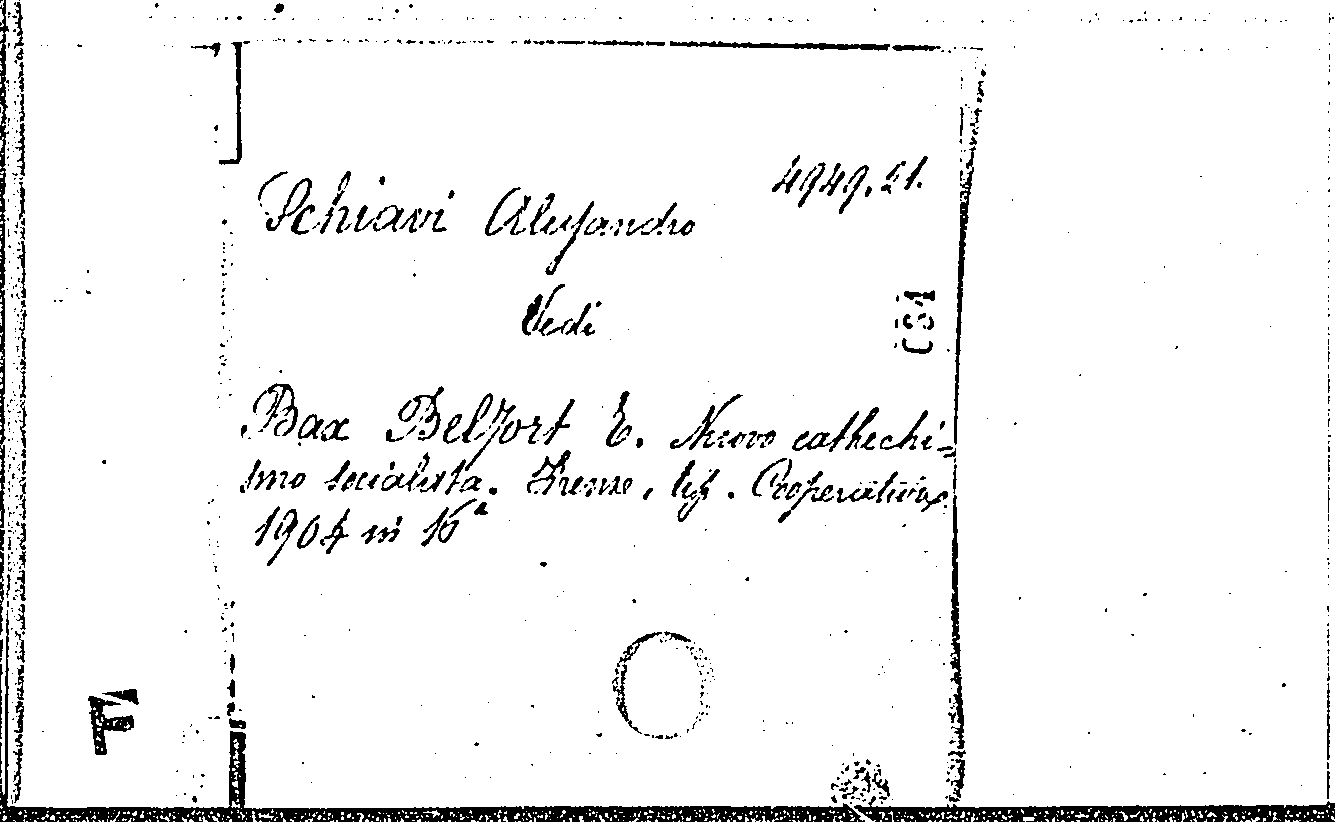 4949.21.
Schiavi Alessandro
Vedi
081
Bax Belfort E. Nuovo catechi=
smo socialista. Firenze, tip. Cooperativa
1904 in 16°
F